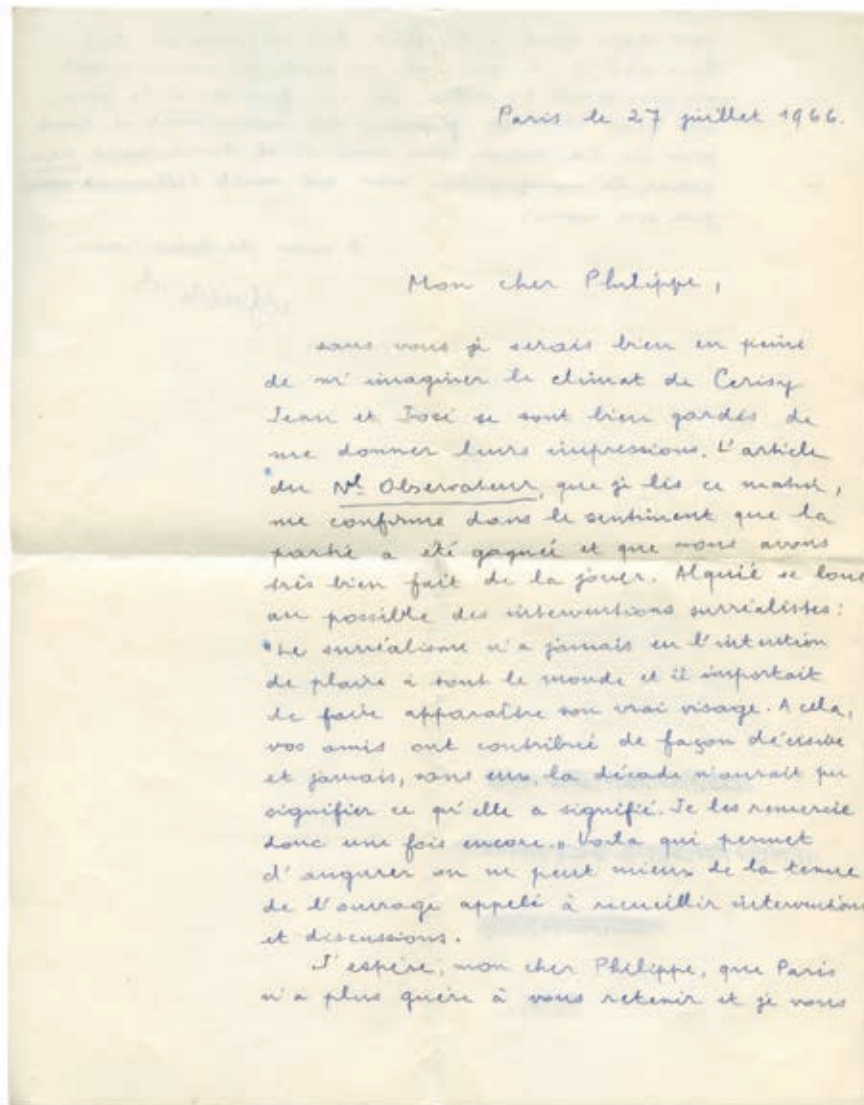 Paris le 27 juillet 1966.
Mon cher Philippe,
sans vous je serais bien en peine
de m'imaginer le climat de Cerisy
Jean et José se sont bien gardés de
me donner leurs impressions. L'article
du Nl. Observateur, que je lis ce matin,
me confirme dans le sentiment que la
partie a été gagnée et que nous avons
très bien fait de la jouer. Alquié se loue
au possible des interventions surréalistes :
"Le surréalisme n'a jamais eu l'intention
de plaire à tout le monde et il importait
de faire apparaître son vrai visage. A cela,
vos amis ont contribué de façon décisive
et jamais, sans eux, la décade n'aurait pu
signifier ce qu'elle a signifié. Je les remercie
donc une fois encore." Voilà qui permet
d'augurer on ne peut mieux de la tenue
de l'ouvrage appelé à recueillir interventions
et discussions.
J'espère, mon cher Philippe, que Paris
n'a plus guère à vous retenir et je vous